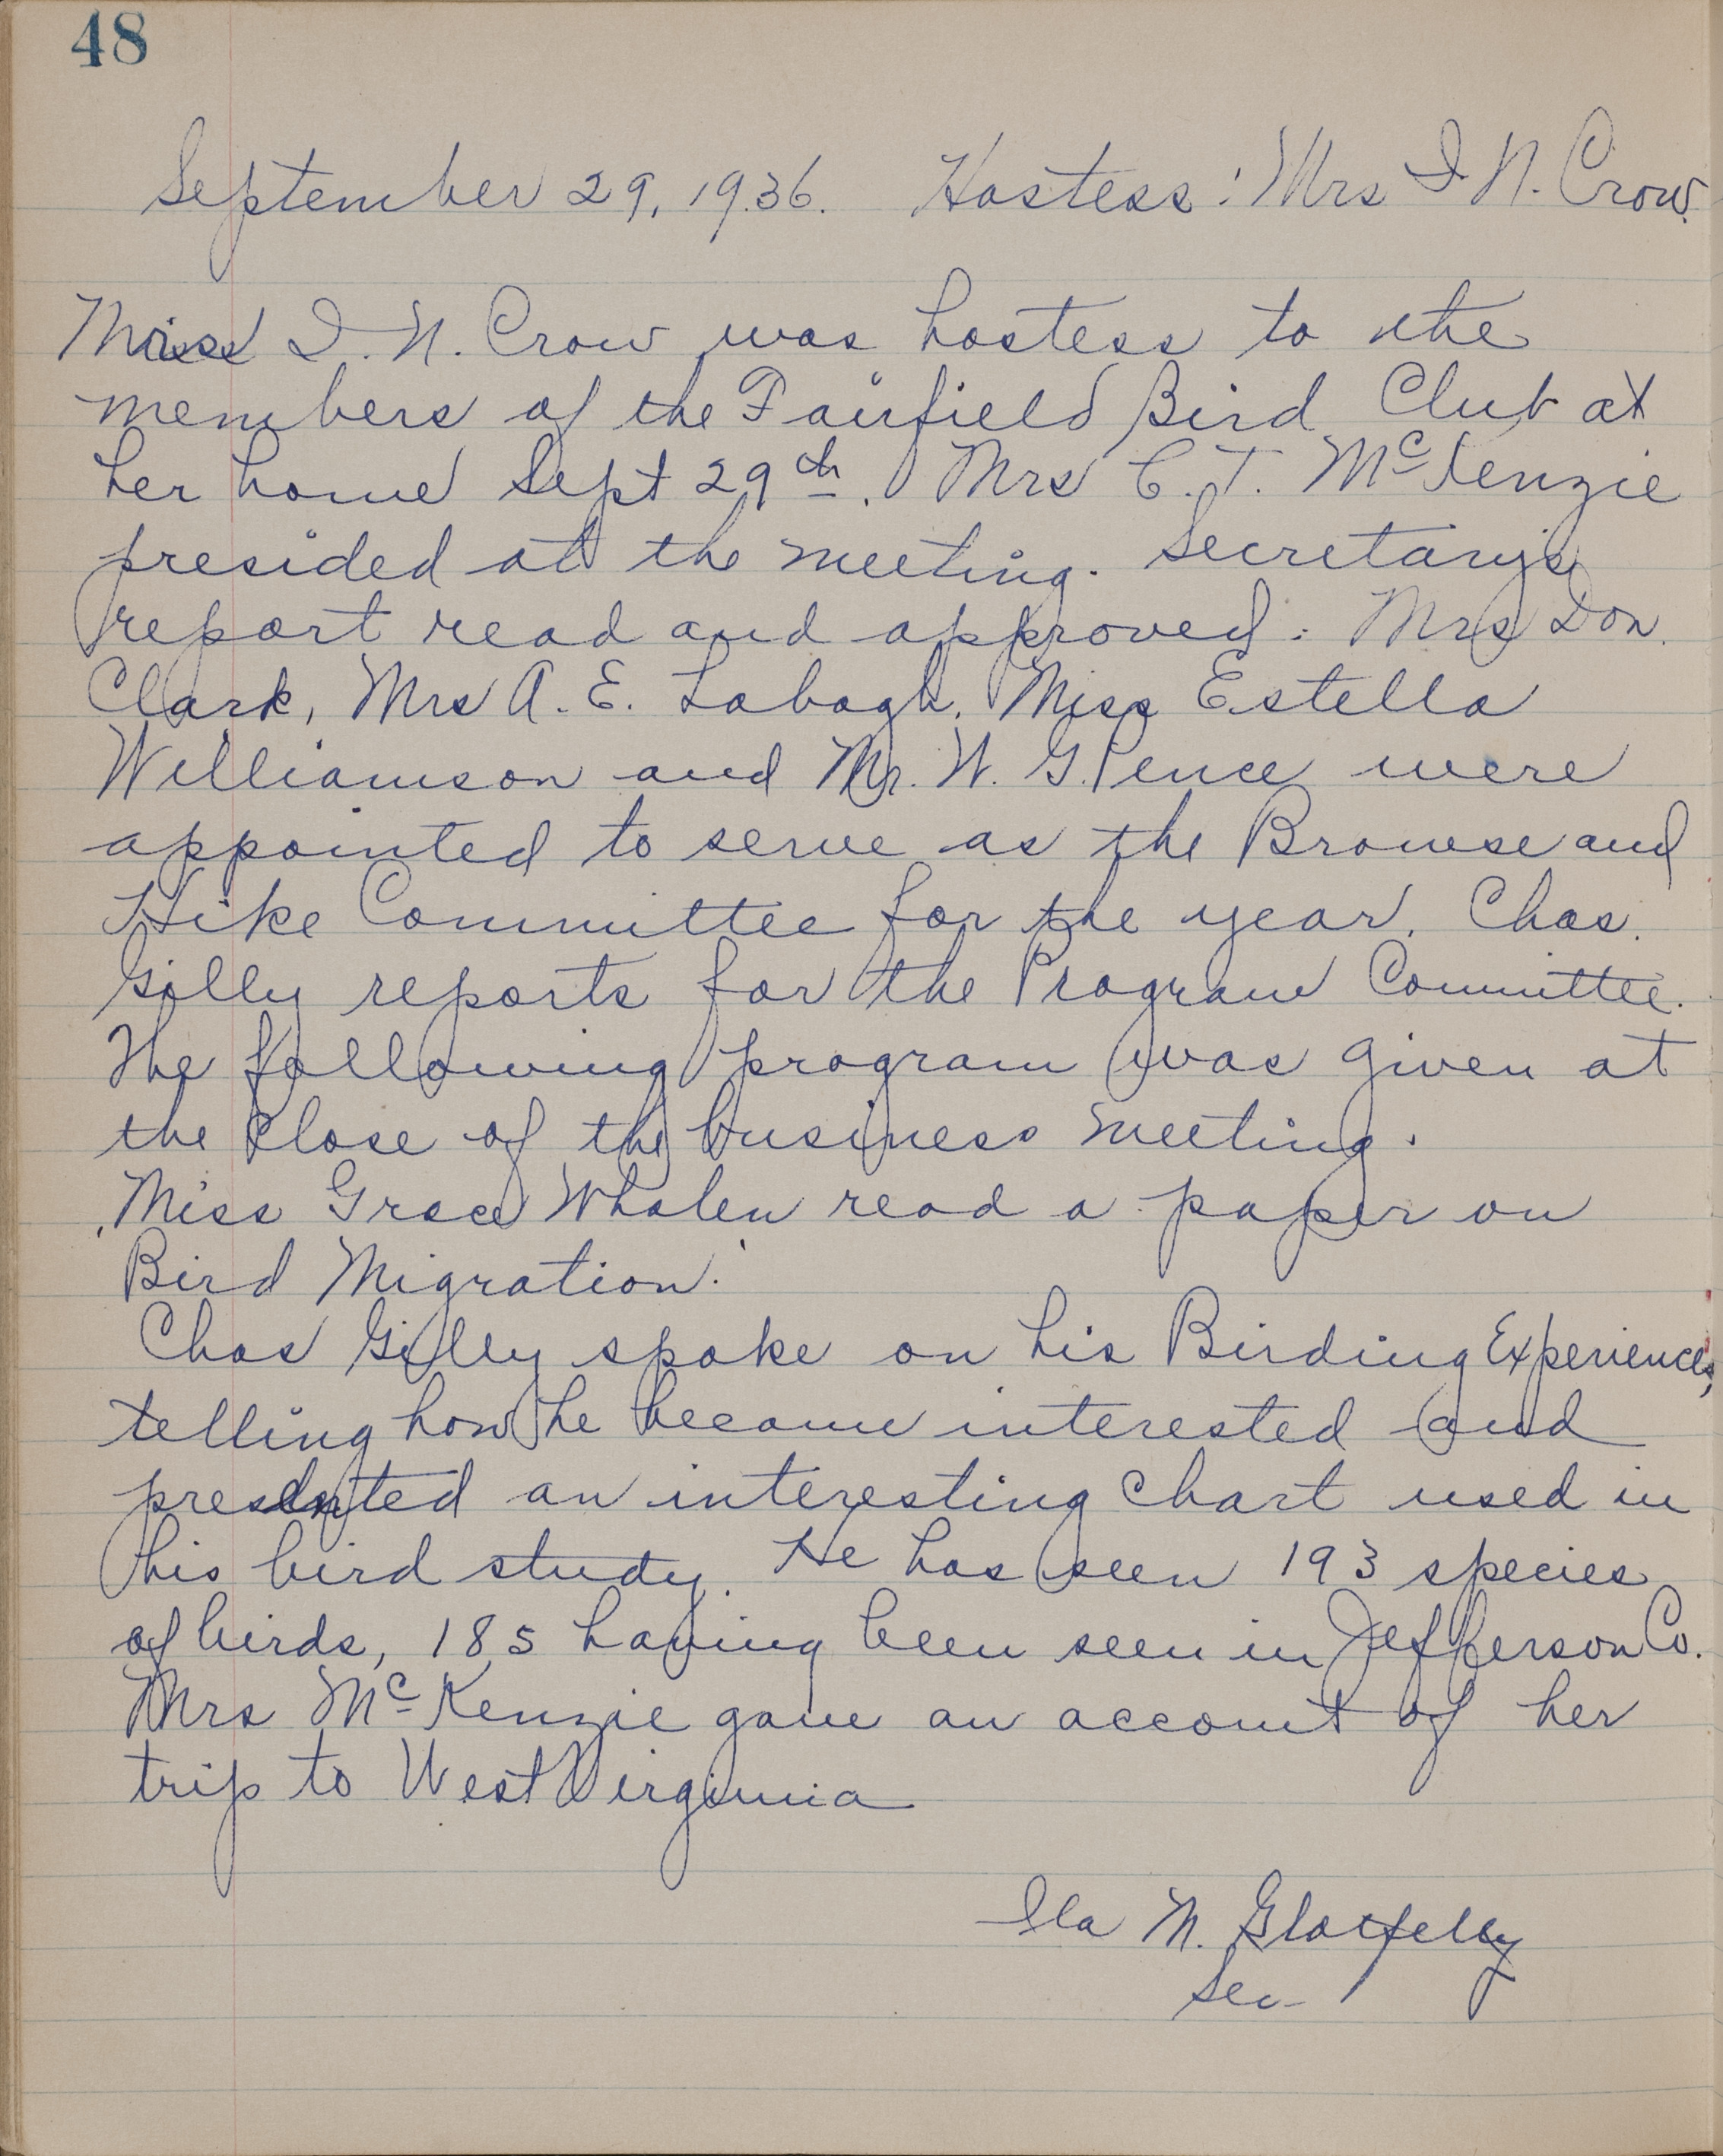 48
September 29, 1936. Hostess: Mrs I. N. Crow.
Mrs I. N. Crow was hostess to the
members of the Fairfield Bird Club at
her home Sept 29th. Mrs C. T. McKenzie
presided at the meeting. Secretary's
report read and approved. Mrs Don
Clark, Mrs A. E. Labagh, Miss Estella
Williamson and Mr. W. G. Pence were
appointed to serve as the Browse and
Hike Committee for the year. Chas.
Gilly reports for the Program Committee.
The following program was given at
the close of the business meeting.
Miss Grace Whalen read a paper on
Bird Migration.
Chas Gilly spoke on his Birding Experiences,
telling how he became interested and
presented an interesting chart used in
his bird study. He has seen 193 species
of birds, 185 having been seen in Jefferson Co.
Mrs McKenzie gave an account of her
trip to West Virginia
Ila M. Glotfelty
Sec-